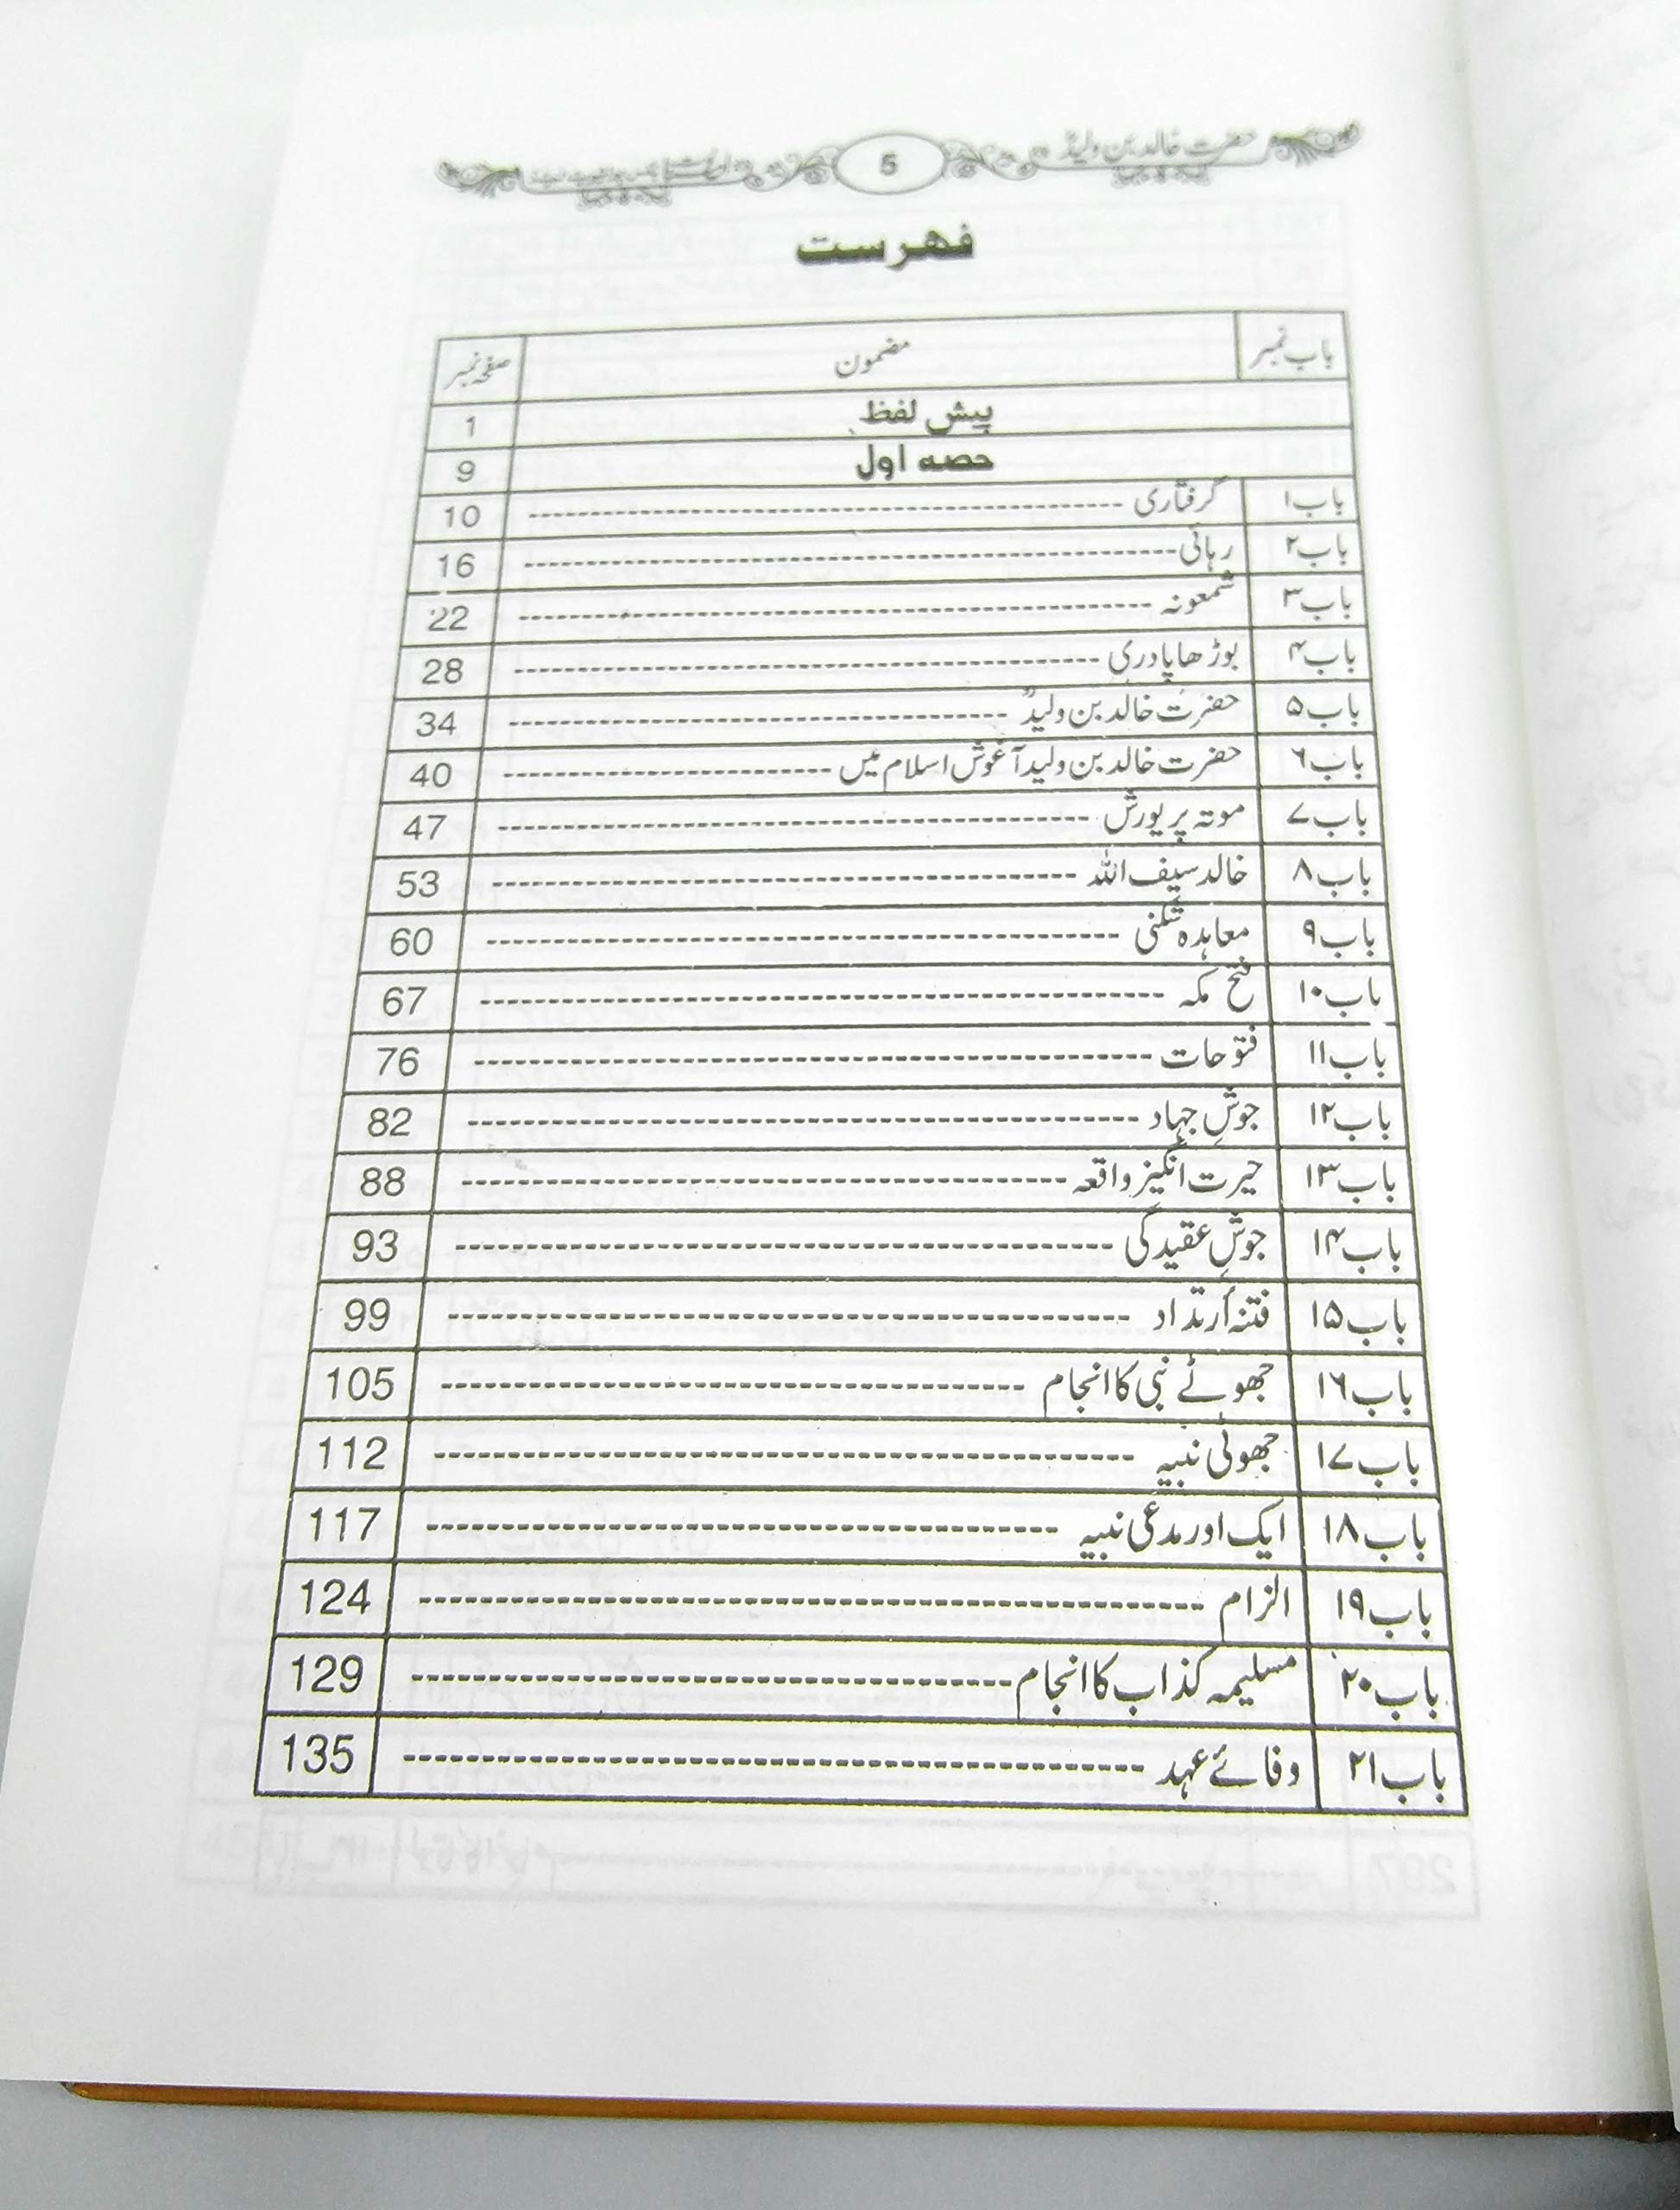 حضرت خالد بن ولیدؓ
5
فهرست
باب نمبر مضمون صفحہ نمبر
پیش لفظ 1
حصہ اول 9
باب۱ گرفتاری ---------- 10
باب۲ رہائی ---------- 16
باب۳ شمعونہ ---------- 22
باب۴ بوڑھا پادری ---------- 28
باب۵ حضرت خالد بن ولیدؓ ---------- 34
باب۶ حضرت خالد بن ولید آغوش اسلام میں ---------- 40
باب۷ موتہ پر یورش ---------- 47
باب۸ خالد سیف اللہ ---------- 53
باب۹ معاہدہ شکنی ---------- 60
باب۱۰ فتح مکہ ---------- 67
باب۱۱ فتوحات ---------- 76
باب۱۲ جوشِ جہاد ---------- 82
باب۱۳ حیرت انگیز واقعہ ---------- 88
باب۱۴ جوشِ عقیدگی ---------- 93
باب۱۵ فتنہ ارتداد ---------- 99
باب۱۶ جھوٹے نبی کا انجام ---------- 105
باب۱۷ جھوٹی نبیہ ---------- 112
باب۱۸ ایک اور مدعی نبیہ ---------- 117
باب۱۹ الزام ---------- 124
باب۲۰ مسلیمہ کذاب کا انجام ---------- 129
باب۲۱ وفائے عہد ---------- 135